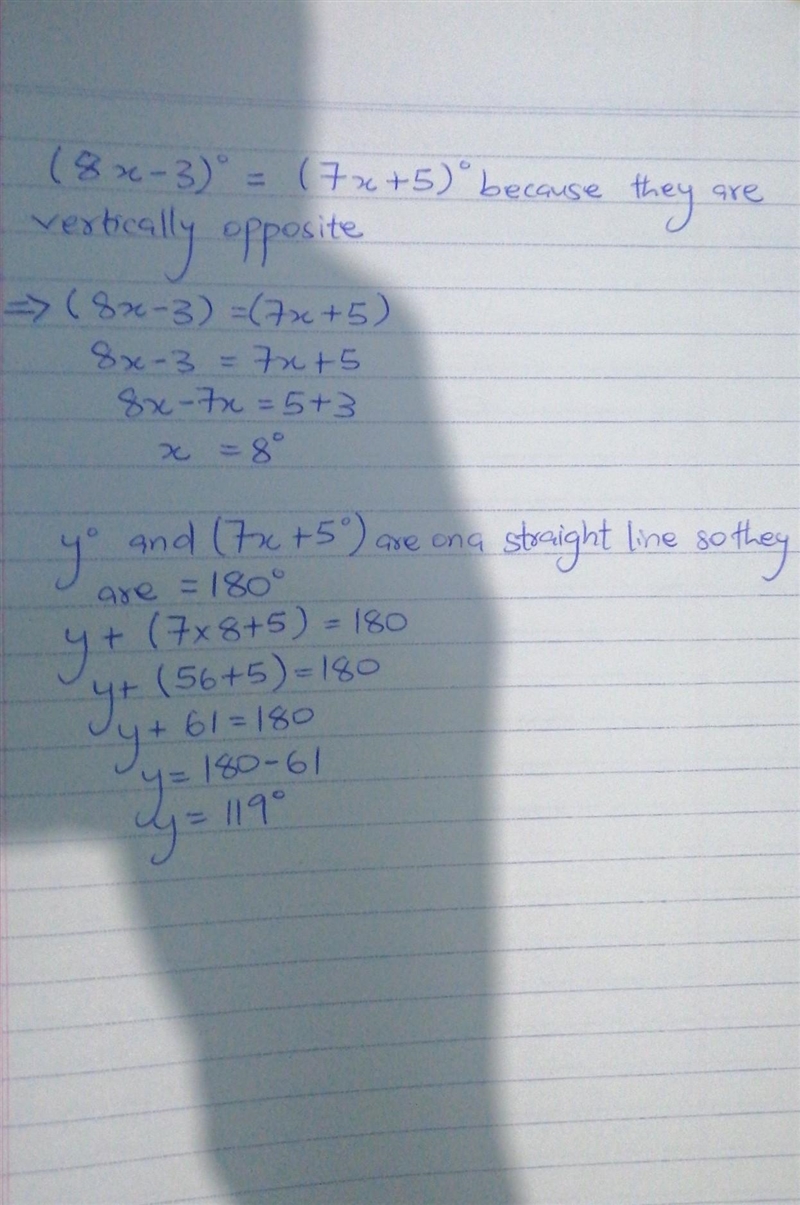 (8x-3)° = (7x+5)° because they are
vertically opposite
=> (8x-3) =(7x+5)
8x-3 = 7x+5
8x-7x = 5+3
x = 8°
y° and (7x+5°) are on a straight line so they
are = 180°
y+ (7x8+5) = 180
y+ (56+5)=180
y+ 61=180
y= 180-61
y= 119°